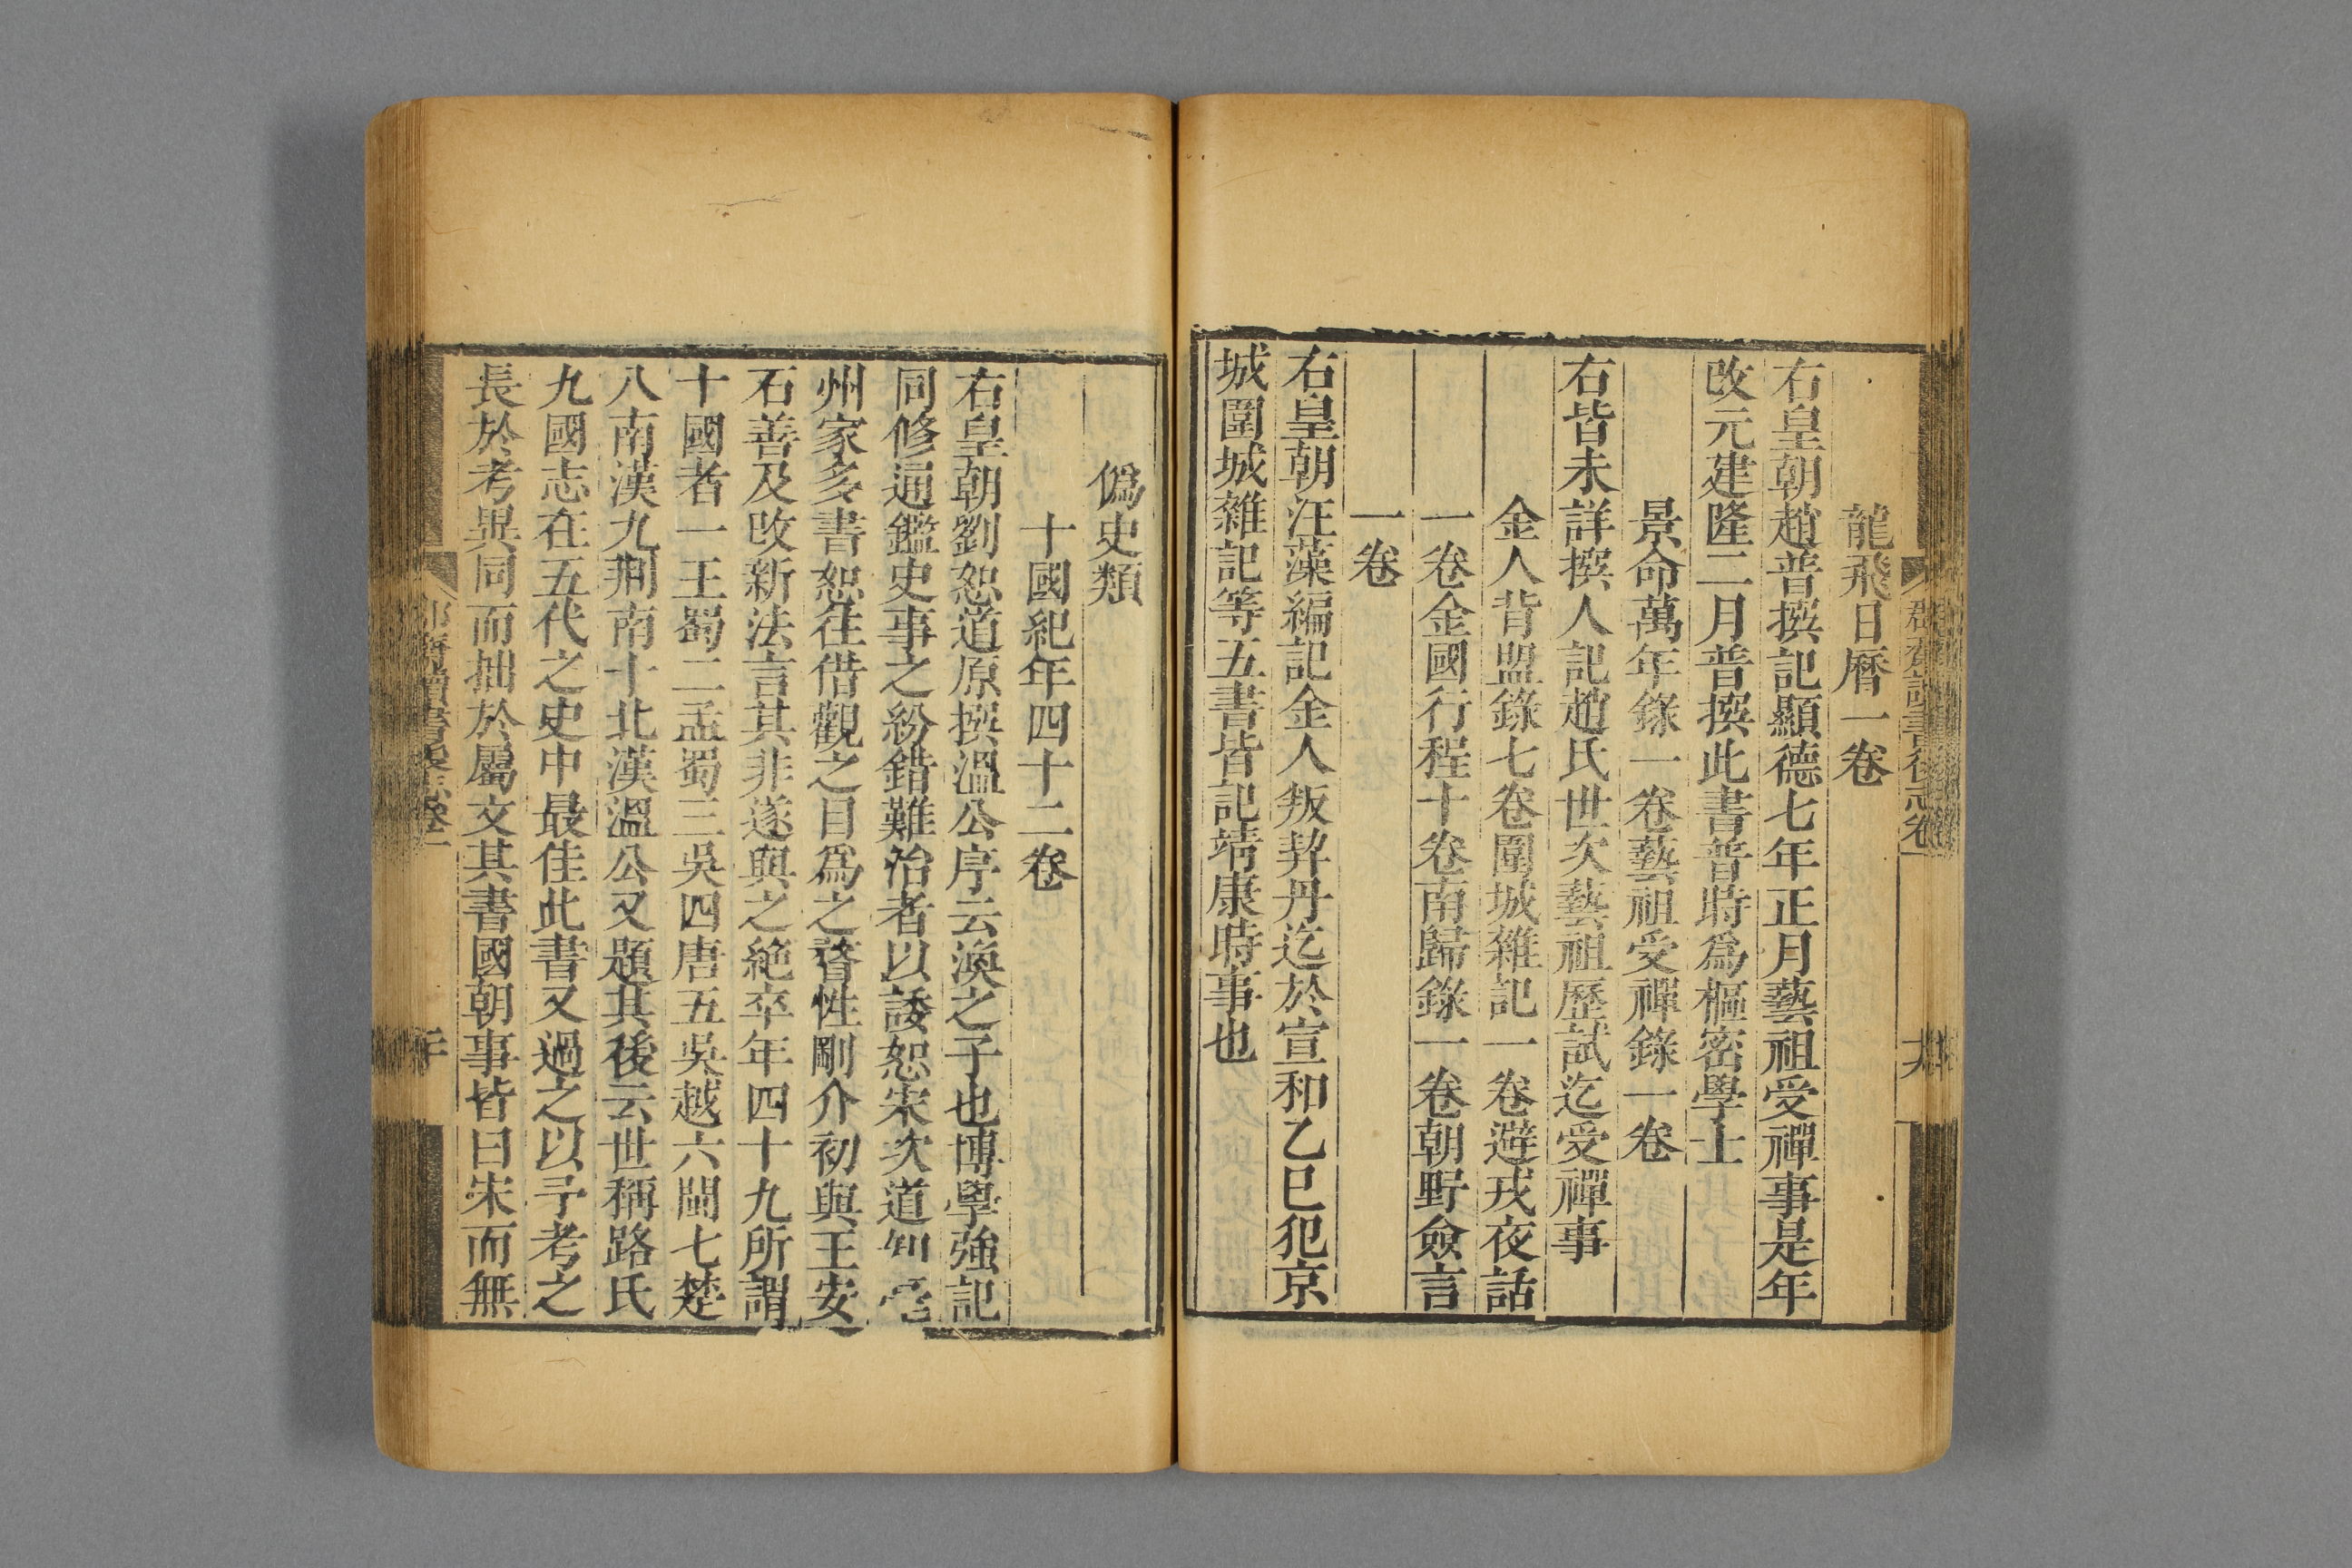 龍飛日曆一卷
右皇朝趙普撰記顯德七年正月藝祖受禪事是年
改元建隆二月普撰此書普時爲樞密學士
景命萬年錄一卷藝祖受禪錄一卷
右皆未詳撰人記趙氏世次藝祖歷試迄受禪事
金人背盟錄七卷圍城雜記一卷避戎夜話
一卷金國行程十卷南歸錄一卷朝野僉言
一卷
右皇朝汪藻編記金人叛契丹迄於宣和乙巳犯京
城圍城雜記等五書皆記靖康時事也
僞史類
十國紀年四十二卷
右皇朝劉恕道原撰溫公序云渙之子也博學強記
同修通鑑史事之紛錯難治者以諉恕宋次道知亳
州家多書恕往借觀之目爲之瞀性剛介初與王安
石善及改新法言其非遂與之絶卒年四十九所謂
十國者一王蜀二孟蜀三吳四唐五吳越六閩七楚
八南漢九荆南十北漢溫公又題其後云世稱路氏
九國志在五代之史中最佳此書又過之以予考之
長於考異同而拙於屬文其書國朝事皆曰宋而無